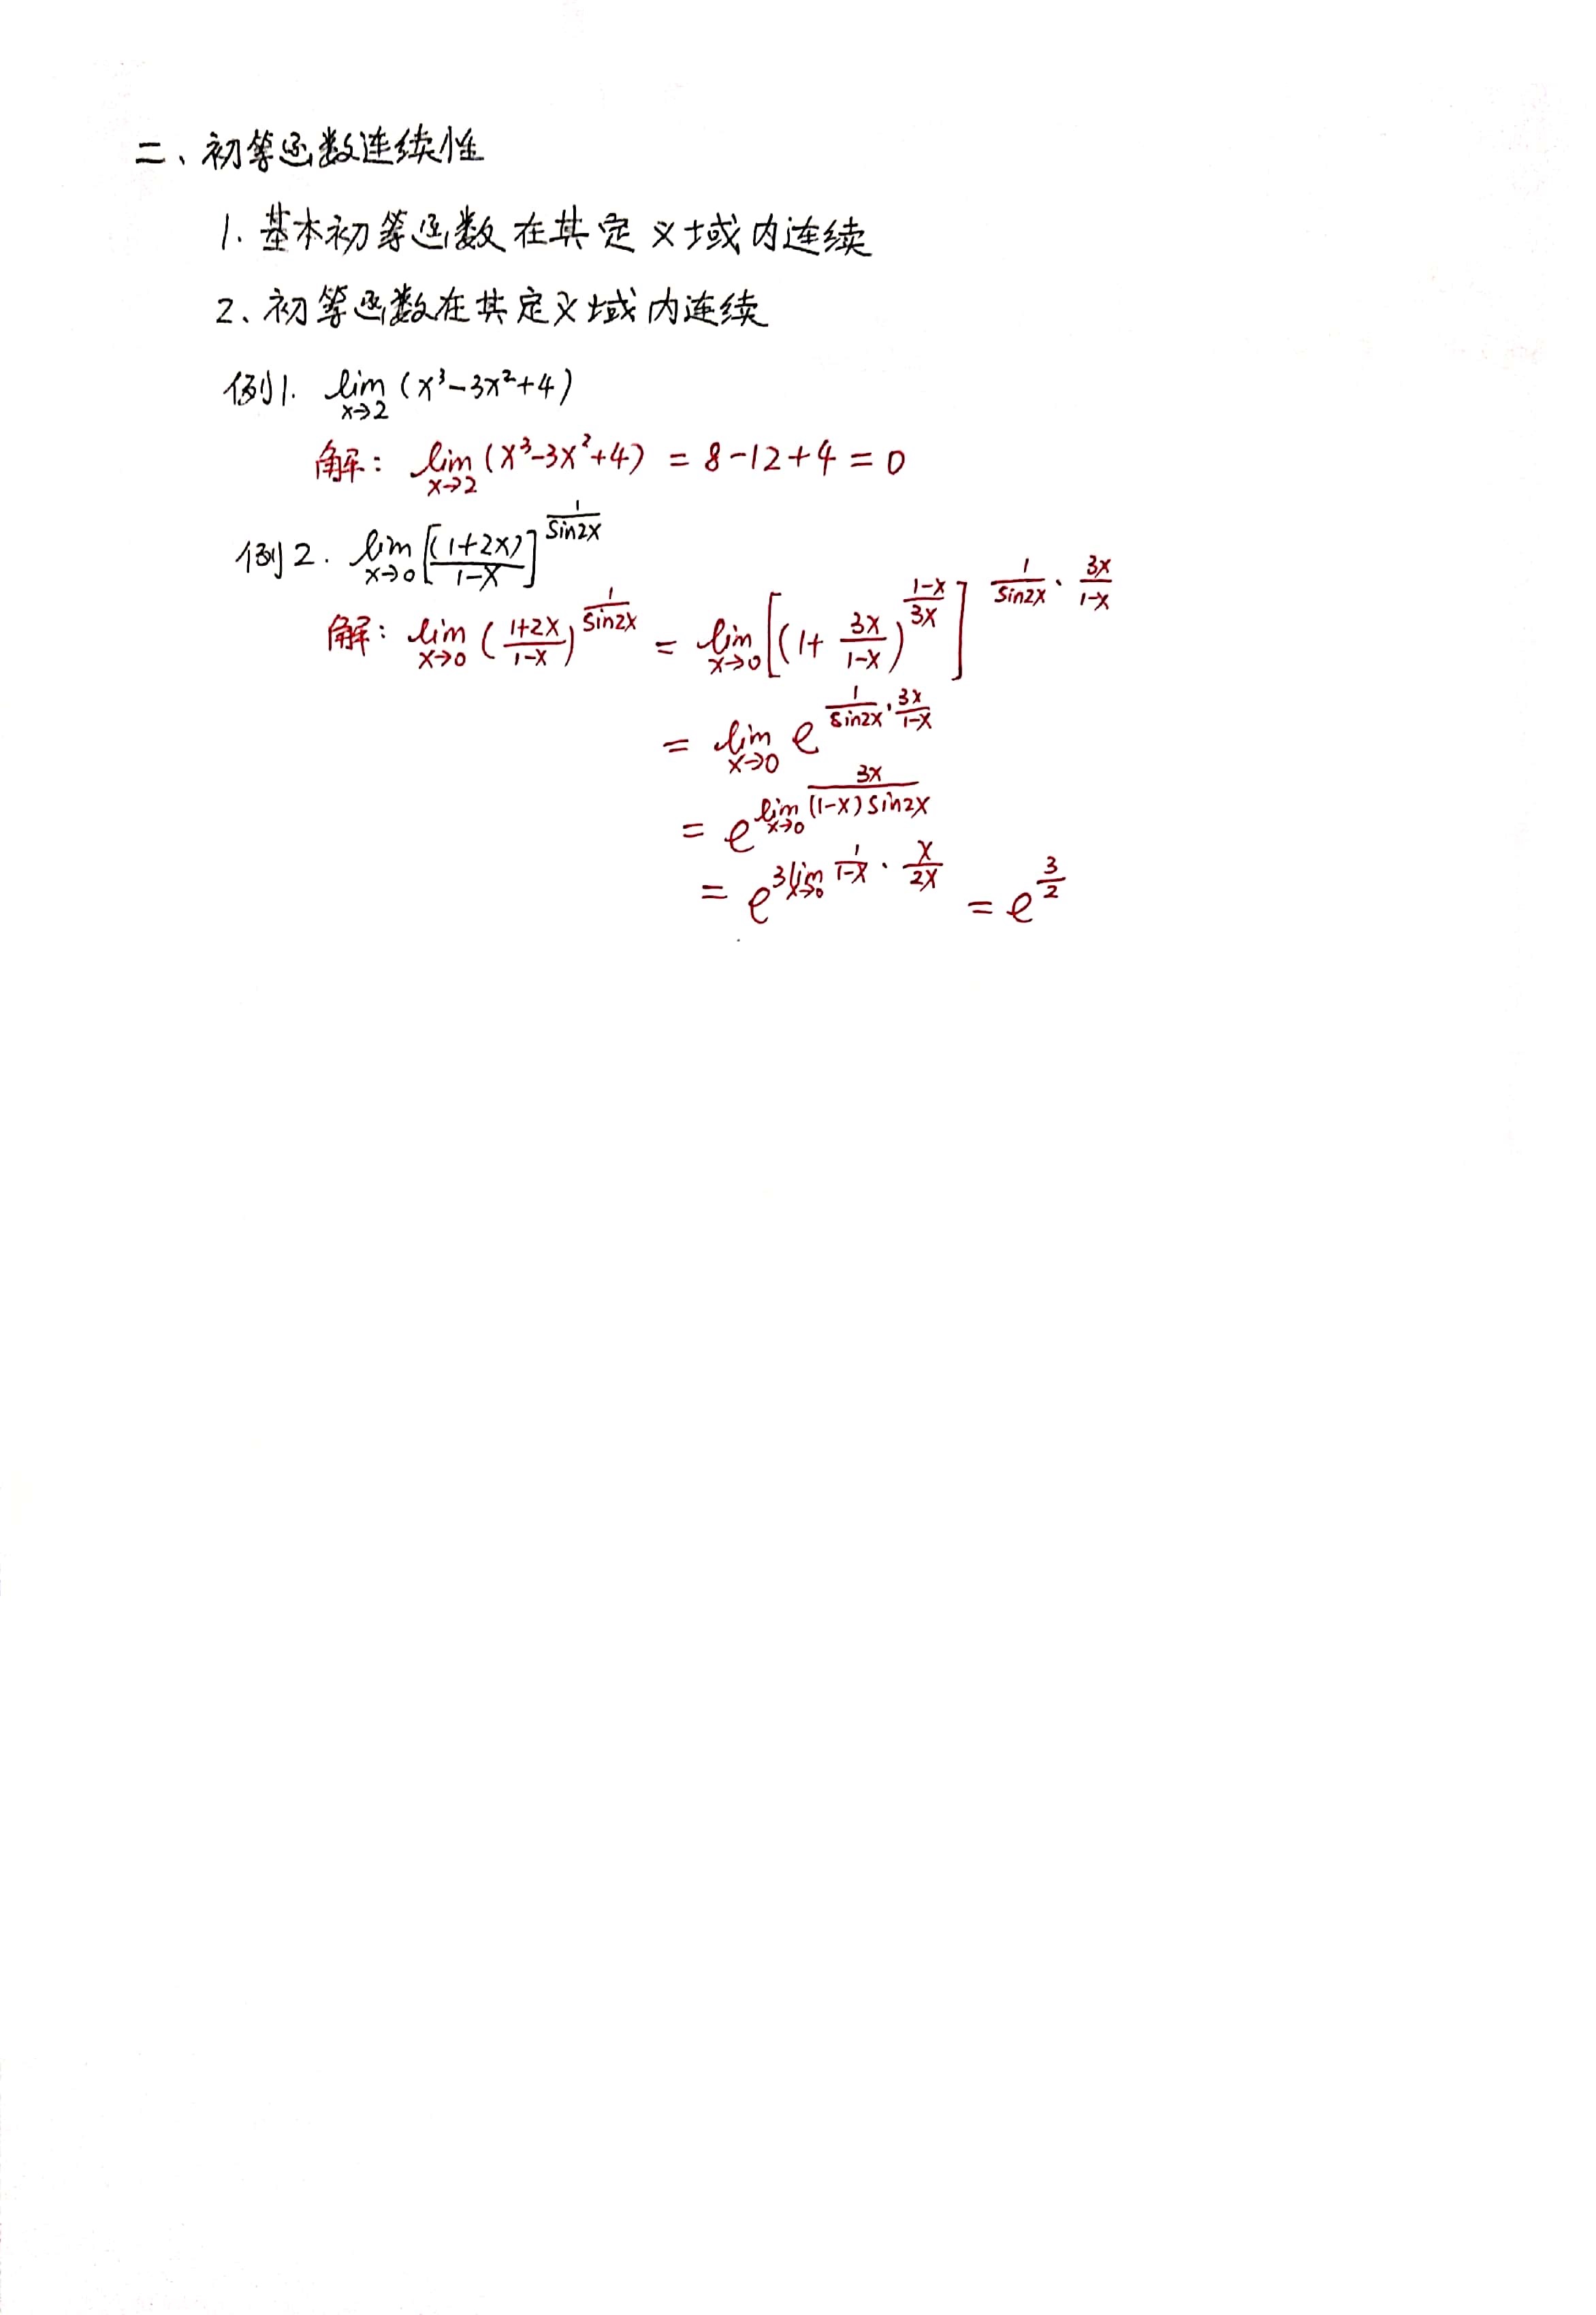 二、初等函数连续性
1. 基本初等函数在其定义域内连续
2、初等函数在其定义域内连续
例1. $\lim_{x \to 2} (x^3 - 3x^2 + 4)$
解： $\lim_{x \to 2} (x^3 - 3x^2 + 4) = 8 - 12 + 4 = 0$
例2. $\lim_{x \to 0} \left[ \frac{(1+2x)}{1-x} \right]^{\frac{1}{\sin 2x}}$
解： $\lim_{x \to 0} \left( \frac{1+2x}{1-x} \right)^{\frac{1}{\sin 2x}} = \lim_{x \to 0} \left[ \left( 1 + \frac{3x}{1-x} \right)^{\frac{1-x}{3x}} \right]^{\frac{1}{\sin 2x} \cdot \frac{3x}{1-x}}$
$= \lim_{x \to 0} e^{\frac{1}{\sin 2x} \cdot \frac{3x}{1-x}}$
$= e^{\lim_{x \to 0} \frac{3x}{(1-x) \sin 2x}}$
$= e^{3 \lim_{x \to 0} \frac{1}{1-x} \cdot \frac{x}{2x}} = e^{\frac{3}{2}}$